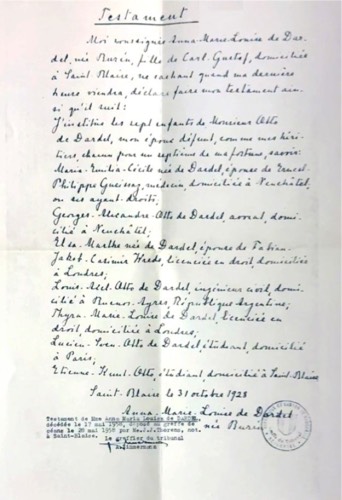 Testament
Moi soussignée Anna-Marie-Louise de Dar-
del, née Burén, fille de Carl-Gustaf, domiciliée
à Saint-Blaise, ne sachant quand ma dernière
heure viendra, déclare faire mon testament ain-
si qu'il suit:
J'institue les sept enfants de Monsieur Otto
de Dardel, mon époux défunt, comme mes héri-
tiers, chacun pour un septième de ma fortune, savoir:
Marie-Emilia-Cécile née de Dardel, épouse de Ernest-
Philippe médecin, domiciliée à Neuchâtel,
ou ses ayant-droits;
Georges-Alexandre-Otto de Dardel, avocat, domi-
cilié à Neuchâtel;
Elsa-Marthe née de Dardel, épouse de Fabian-
Jakob-Casimir licenciée en droit, domiciliée
à Londres;
Louis-Axel-Otto de Dardel, ingénieur civil, domi-
cilié à Buenos-Ayres, République Argentine;
Thyra-Marie-Louise de Dardel, licenciée en
droit, domiciliée à Londres;
Lucien-Yvon-Otto de Dardel, étudiant, domicilié
à Paris;
Etienne-Knut-Otto, étudiant domicilié à Saint-Blaise
Saint-Blaise le 31 octobre 1928
Anna-Marie-Louise de Dardel
née Burén
Testament de Mme Anna Maria Louise de DARDEL
décédée le 17 mai 1958, déposé au greffe de
céans le 28 mai 1958 par Me.J.J.Thorens, not.
à Saint-Blaise.
Le greffier du tribunal